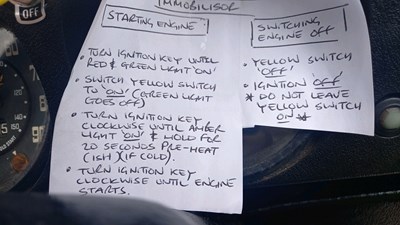 IMMOBILISOR
STARTING ENGINE
• TURN IGNITION KEY UNTIL
RED & GREEN LIGHT 'ON'
• SWITCH YELLOW SWITCH
TO 'ON' (GREEN LIGHT
GOES OFF)
• TURN IGNITION KEY
CLOCKWISE UNTIL AMBER
LIGHT 'ON' & HOLD FOR
20 SECONDS PRE-HEAT
(ISH) (IF COLD).
• TURN IGNITION KEY
CLOCKWISE UNTIL ENGINE
STARTS.
SWITCHING
ENGINE OFF
• YELLOW SWITCH
'OFF'
• IGNITION 'OFF'
* DO NOT LEAVE
YELLOW SWITCH
ON *
OFF